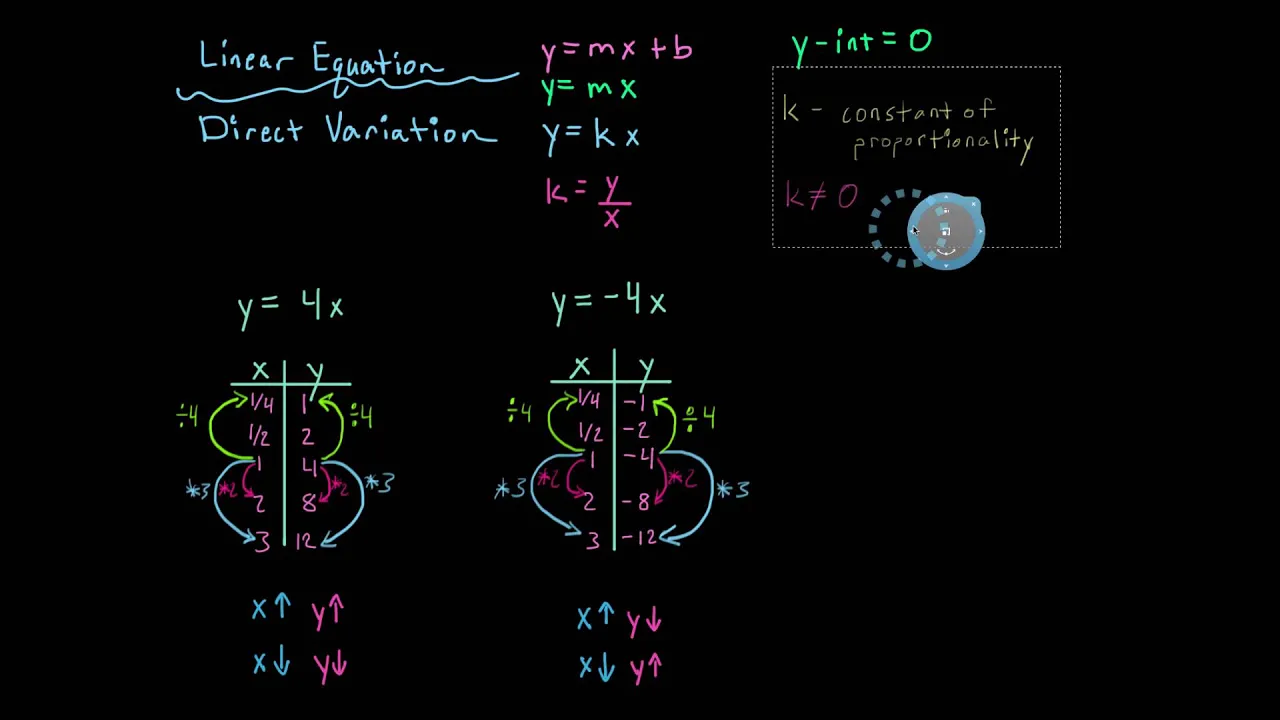 Linear Equation
Direct Variation
y = mx + b
y = mx
y = kx
k = y/x
y-int = 0
k - constant of
proportionality
k ≠ 0
y = 4x
x y
1/4 1
÷4 ÷4
1/2 2
1 4
*3 *2 *2 *3
2 8
3 12
x↑ y↑
x↓ y↓
y = -4x
x y
1/4 -1
÷4 ÷4
1/2 -2
1 -4
*3 *2 *2 *3
2 -8
3 -12
x↑ y↓
x↓ y↑